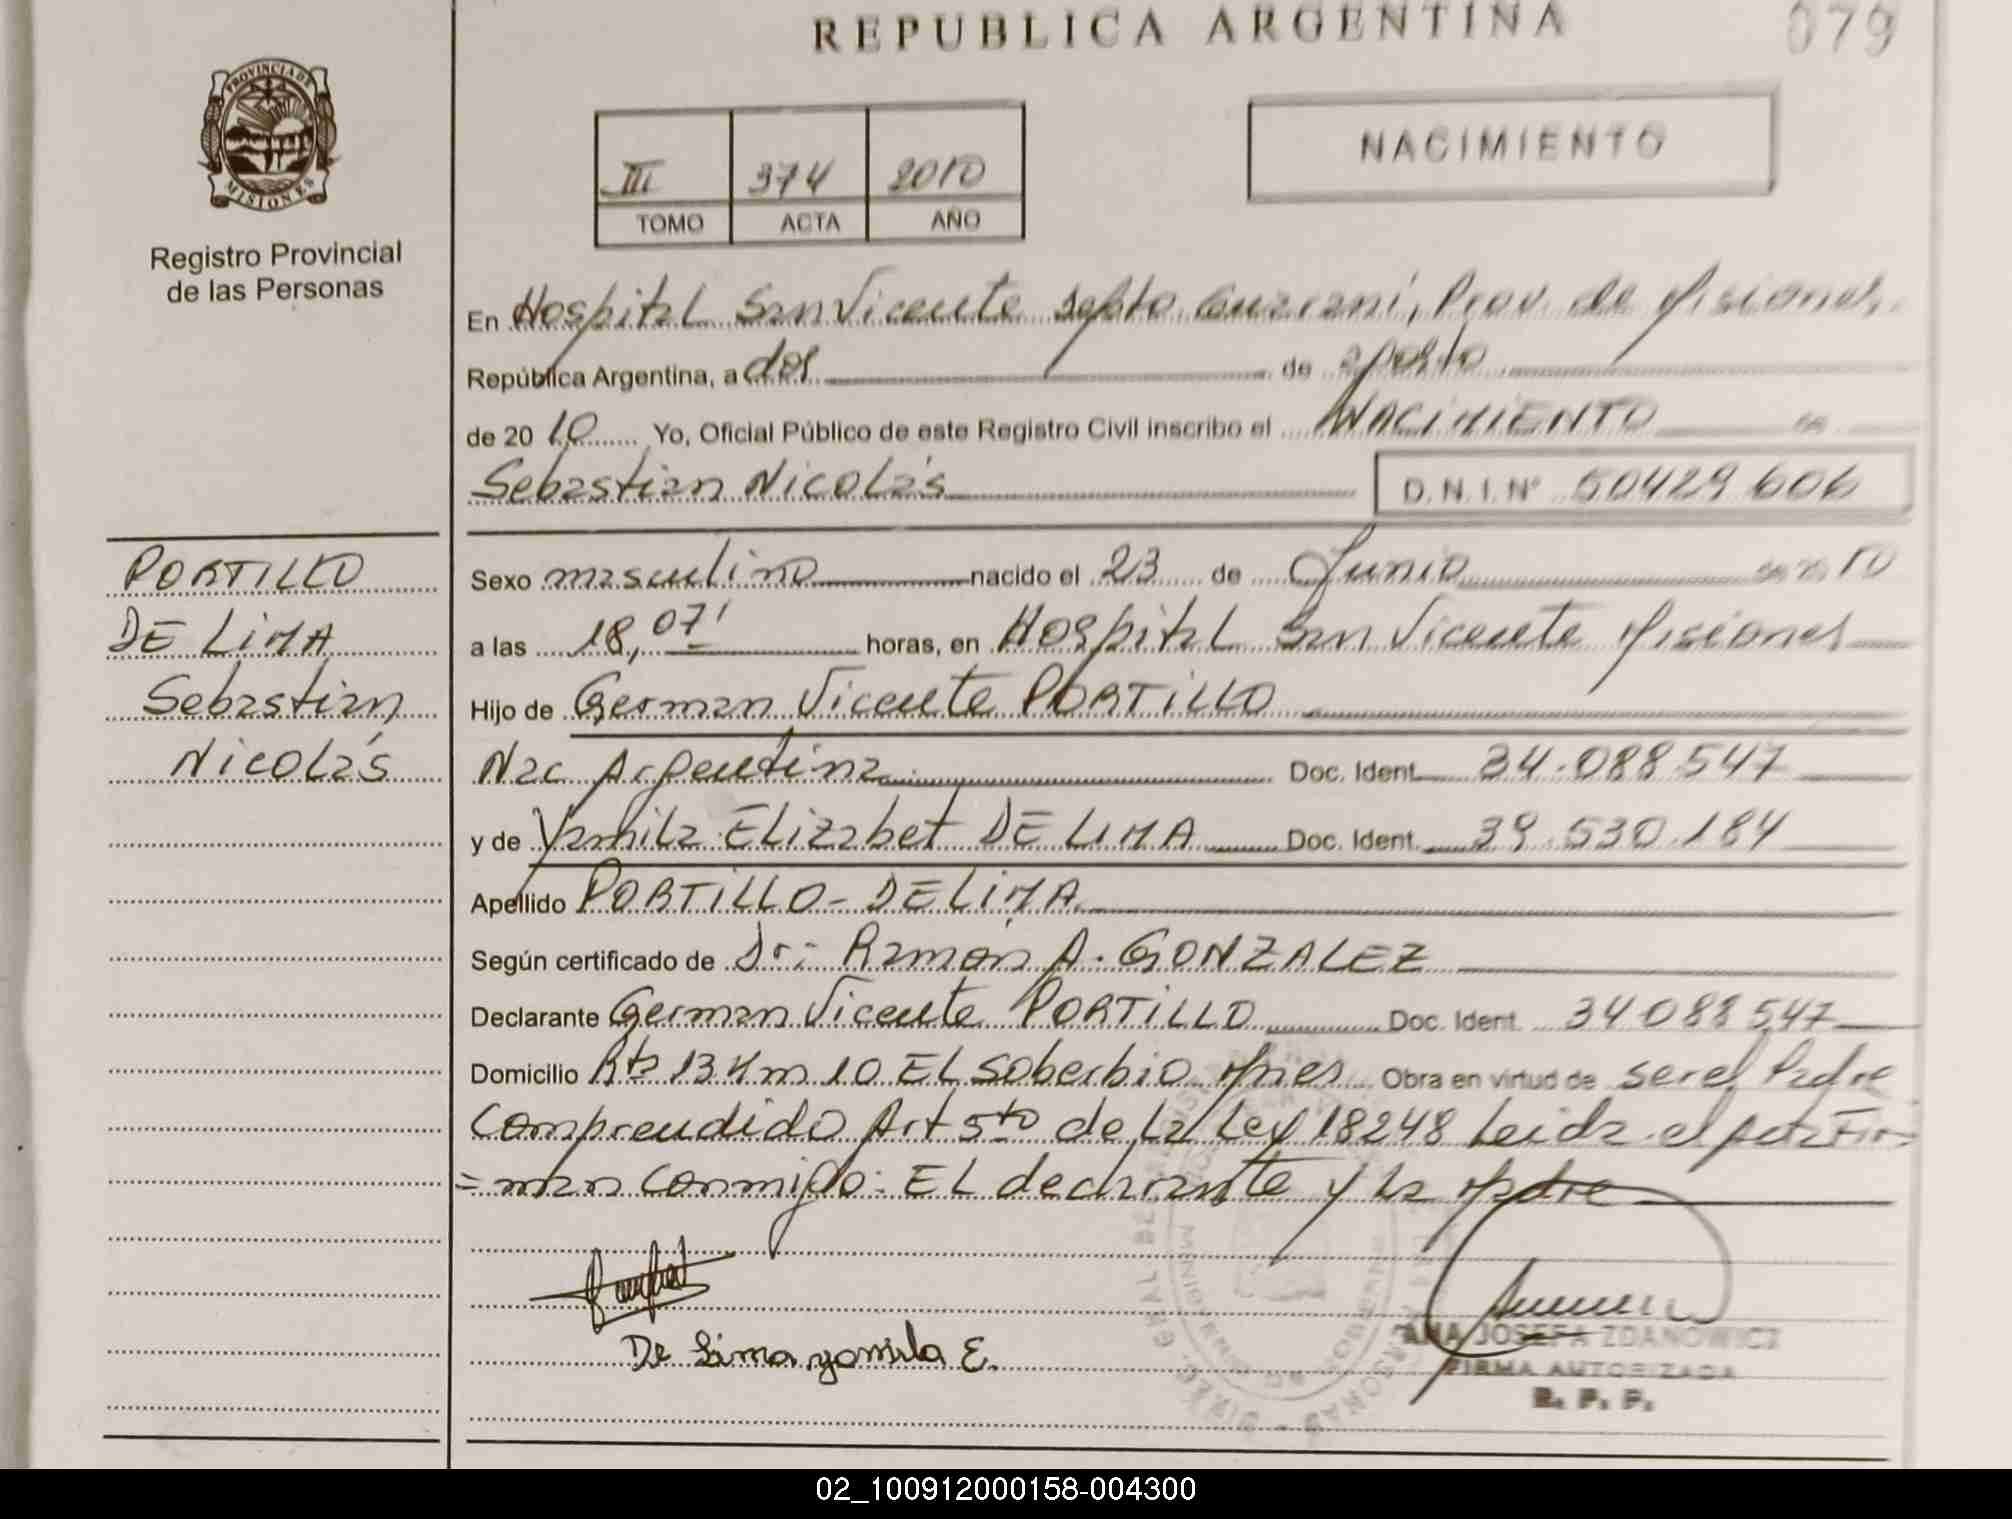 REPUBLICA ARGENTINA
079
PROVINCIA DE
MISIONES
Registro Provincial
de las Personas
III 374 2010
TOMO ACTA AÑO
NACIMIENTO
En Hospital San Vicente Depto Guaraní, Prov. de Misiones,
República Argentina, a dos de agosto
de 20 10 Yo, Oficial Público de este Registro Civil inscribo el NACIMIENTO
Sebastian Nicolás D.N.I. Nº 50429606
PORTILLO
DE LIMA
Sebastian
Nicolás
Sexo masculino nacido el 23 de Junio 10
a las 18,07' horas, en Hospital San Vicente Misiones
Hijo de German Vicente PORTILLO
Nac Argentina Doc. Ident. 34.088547
y de Yamila Elizabet DE LIMA Doc. Ident. 39.530.184
Apellido PORTILLO - DE LIMA
Según certificado de Dr: Ramón A. GONZALEZ
Declarante German Vicente PORTILLO Doc. Ident. 34088547
Domicilio Rta 13 Km 10 El Soberbio Mnes Obra en virtud de ser el Padre
Comprendido Art 5to de La Ley 18248 Leida el Acta Fir
=man conmigo: El declarante y la Madre
De Lima yamila E.
ANA JOSEFA ZDANOWICZ
FIRMA AUTORIZADA
R. P. P.
02_100912000158-004300